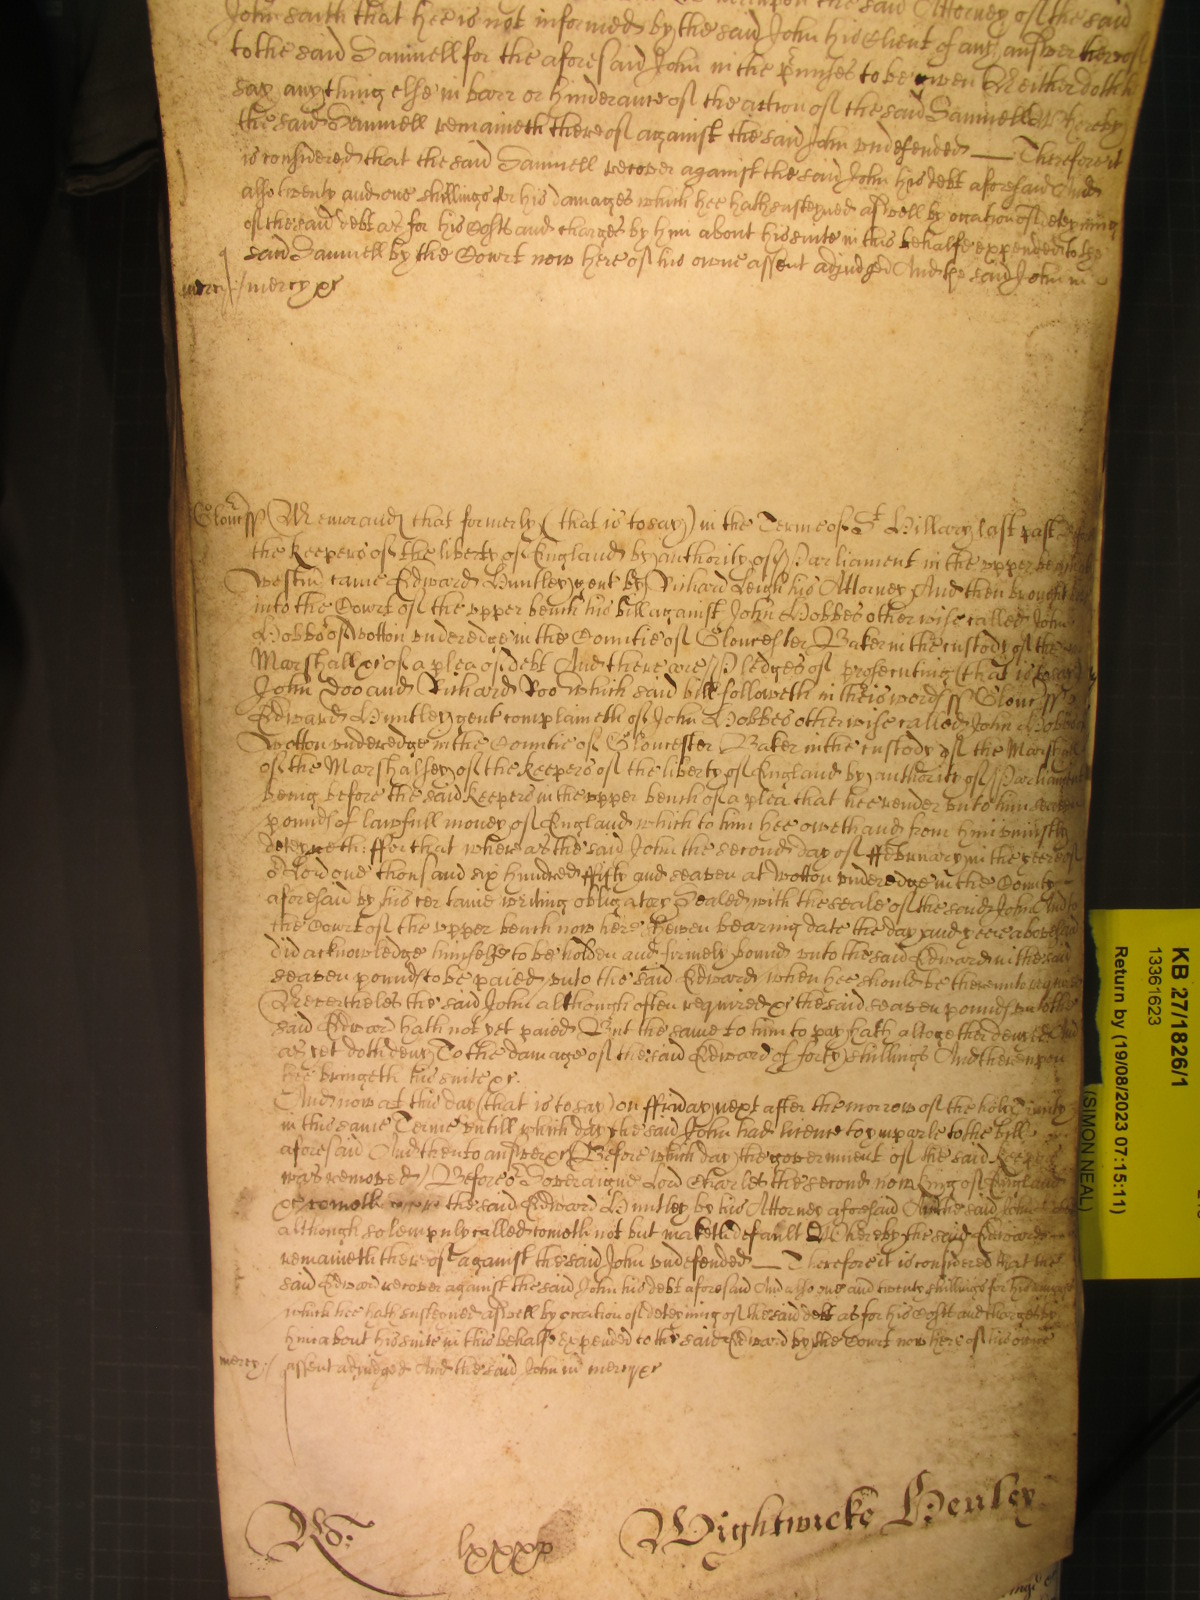 upon the said Attorney of the said
John saith that hee is not informed by the said John his Client of any answer thereof
to the said Samuell for the aforesaid John in the pmisses to be given Neither doth hee
say any thing else in barr or hinderance of the action of the said Samuell Whereby
the said Samuell remaineth thereof against the said John undefended — Therefore it
is considered that the said Samuell recover against the said John his debt aforesaid And
also twenty and one shillings for his damages which hee hath susteyned aswell by occation of deteyning
of the said debt as for his Costs and charges by him about his suite in this behalfe expended to the
said Samuell by the Court now here of his owne assent adjudged And the said John in
mercy / mercy &c
Gloucr ss Memorand that formerly (that is to say) in the Terme of St Hillary last past before
the keepers of the liberty of England by authority of Parliament in the upper bench at
Westm came Edward Huntley gent by Richard Leigh his Attorney And then brought
into the Court of the upper bench his bill against John Hobbes otherwise called John
Hobbs of Wotton underedge in the Countie of Gloucester Baker in the custody of the
Marshall &c of a plea of debt And there are Pledges of prosecuting (that is to say)
John Doo and Richard Roo Which said bill followeth in theis words ss Gloucr ss
Edward Huntley gent complaineth of John Hobbes otherwise called John Hobbs of
Wotton underedge in the Countie of Gloucester Baker in the custody of the Marshall
of the Marshalsey of the keepers of the liberty of England by authority of Parliament
being before the said keepers in the upper bench of a plea that hee render unto him seaven
pounds of lawfull money of England which to him hee oweth and from him uniustly
deteyneth: ffor that whereas the said John the second day of ffebruary in the yeere of
or Lord one thousand six hundred ffifty and seaven at Wotton underedge in the County
aforesaid by his certaine writing obligatory Sealed with the seale of the said John And to
the Court of the upper bench now here shewen bearing date the day and yeere abovesaid
did acknowledge himselfe to be holden and firmely bound unto the said Edward in the said
seaven pounds to be paied unto the said Edward when hee should be thereunto required
Neverthelesse the said John although often required &c the said seaven pounds unto the
said Edward hath not yet paied But the same to him to pay hath altogether denyed And
as yet doth deny To the damage of the said Edward of forty shillings And thereupon
hee bringeth his suite &c.
And now at this day (that is to say) on ffriday next after the morrow of the holy Trinity
in this same Terme untill which day the said John had licence to imparle to the bill
aforesaid And then to answer &c Before which day the government of the said keepers
was removed Before or Soveraigne Lord Charles the second now King of England
&c cometh the said Edward Huntley by his Attorney aforesaid And the said John
although solempnly called cometh not but maketh default Whereby the said Edward
remaineth thereof against the said John undefended — Therefore it is considered that the
said Edward recover against the said John his debt aforesaid And also one and twenty shillings for his damages
which hee hath susteyned aswell by occation of deteyning of the said debt as for his Costs and charges by
him about his suite in this behalfe expended to the said Edward by the Court now here of his owne
mercy / assent adjudged And the said John in mercy &c
Ro: lxxxx Wightwicke Henley
KB 27/1826/1
13361623
Return by (19/08/2023 07:15:11)
(SIMON NEAL)